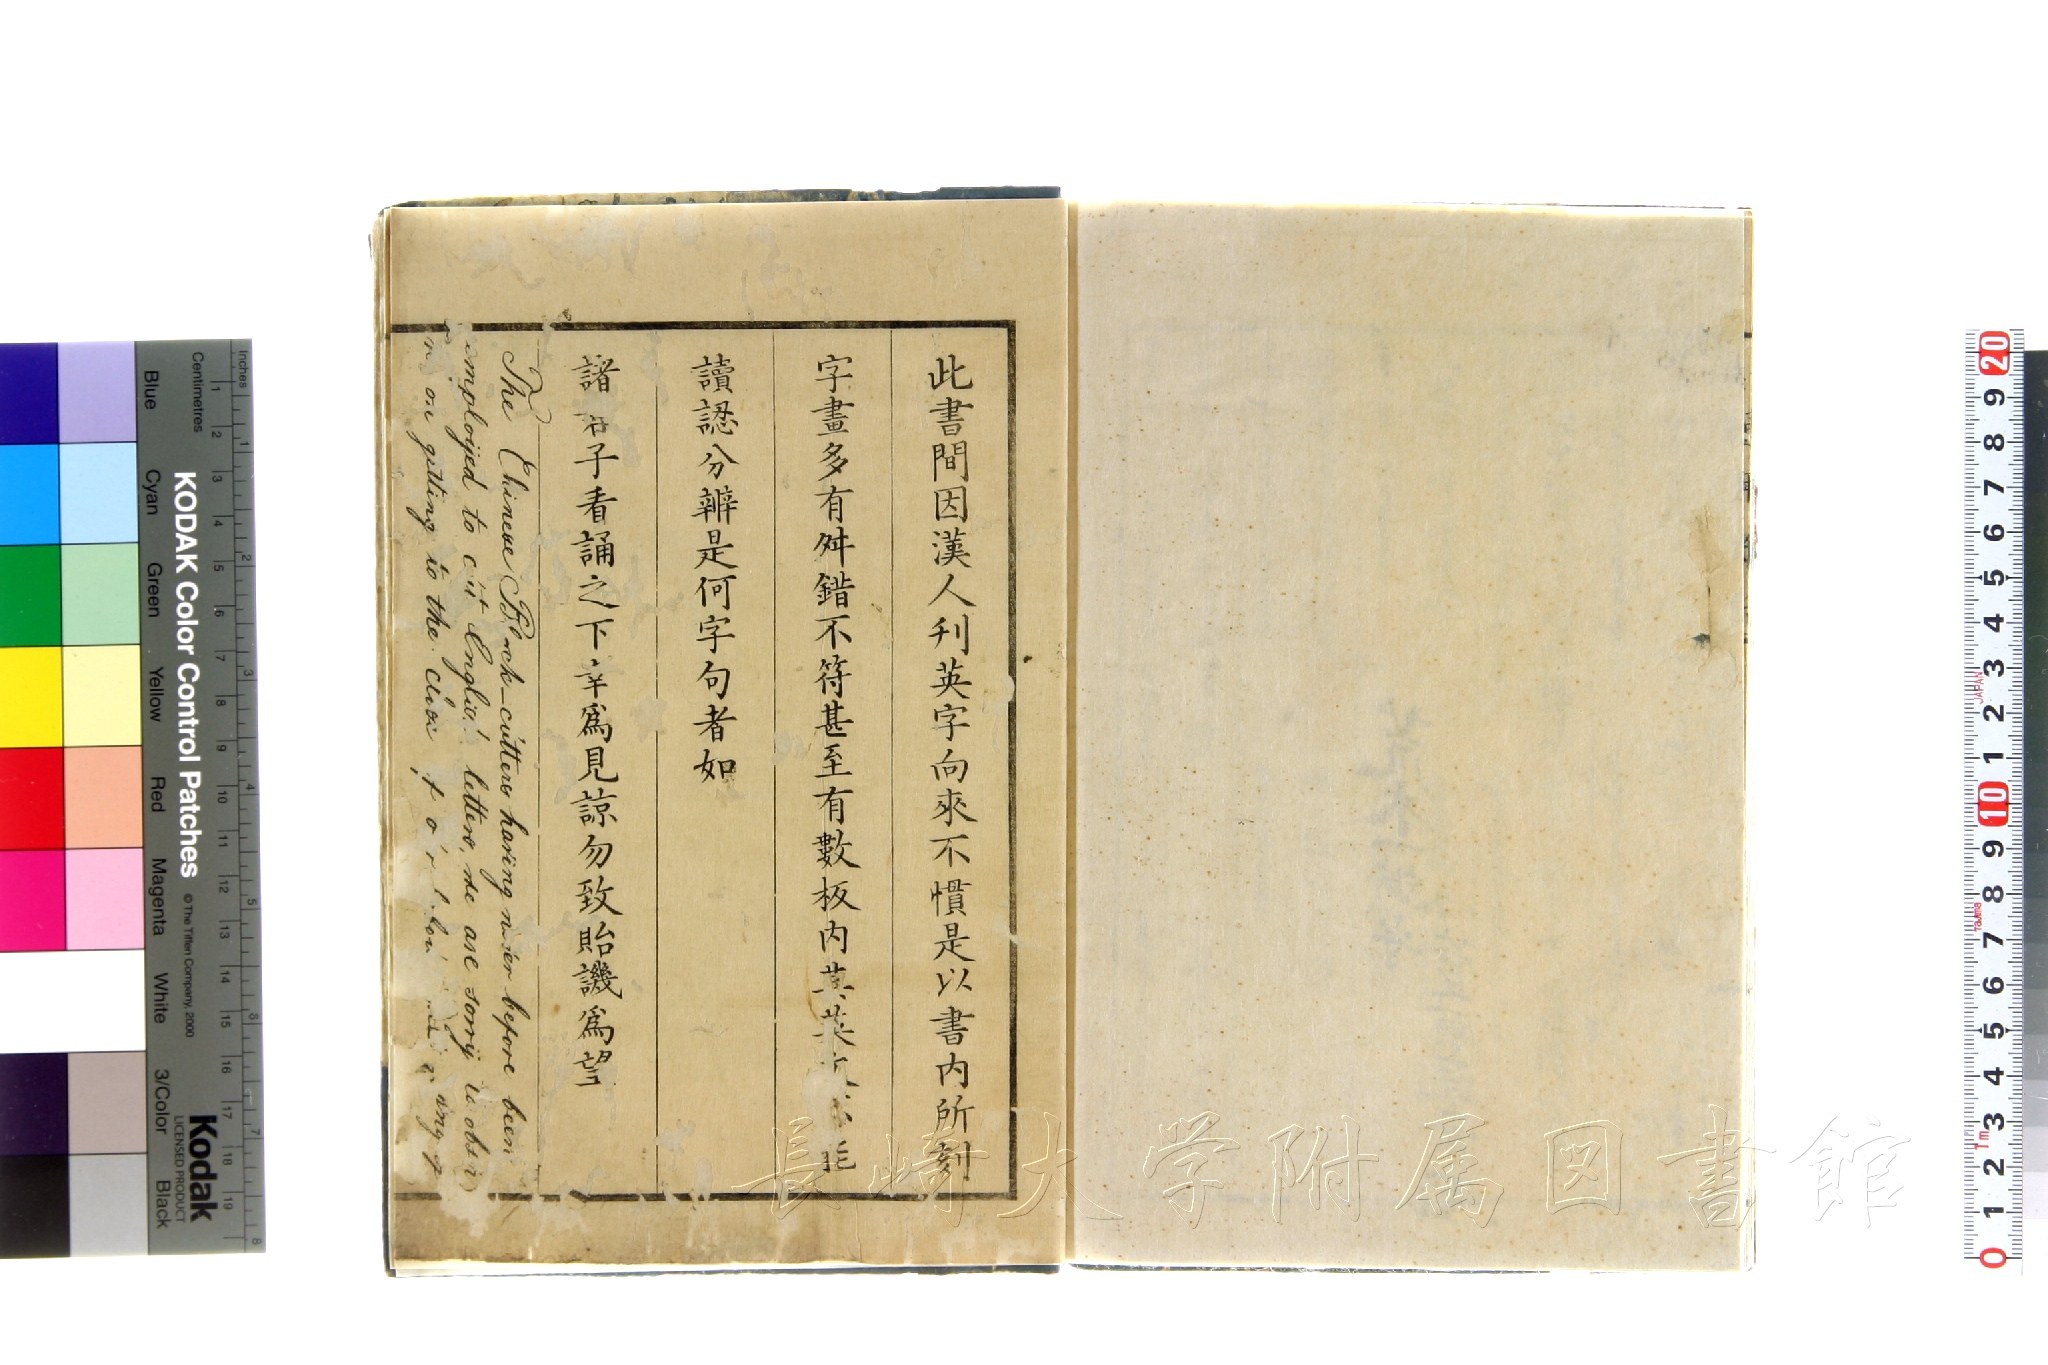 此書間因漢人刋英字向來不慣是以書内所刻
字畫多有舛錯不符甚至有數板内其英文不能
讀認分辨是何字句者如
諸君子看誦之下幸爲見諒勿致貽譏爲望
The Chinese Block-cutters having never before been
employed to cut English letters, we are sorry to obser
on getting to the close of our labours
長崎大学附属図書館
Inches
Centimetres
KODAK Color Control Patches
© The Tiffen Company, 2000
Kodak
LICENSED PRODUCT
Blue
Cyan
Green
Yellow
Red
Magenta
White
3/Color
Black
1 2 3 4 5 6 7 8
1 2 3 4 5 6 7 8 9 10 11 12 13 14 15 16 17 18 19
20 9 8 7 6 5 4 3 2 1 10 9 8 7 6 5 4 3 2 1 0
JAPAN